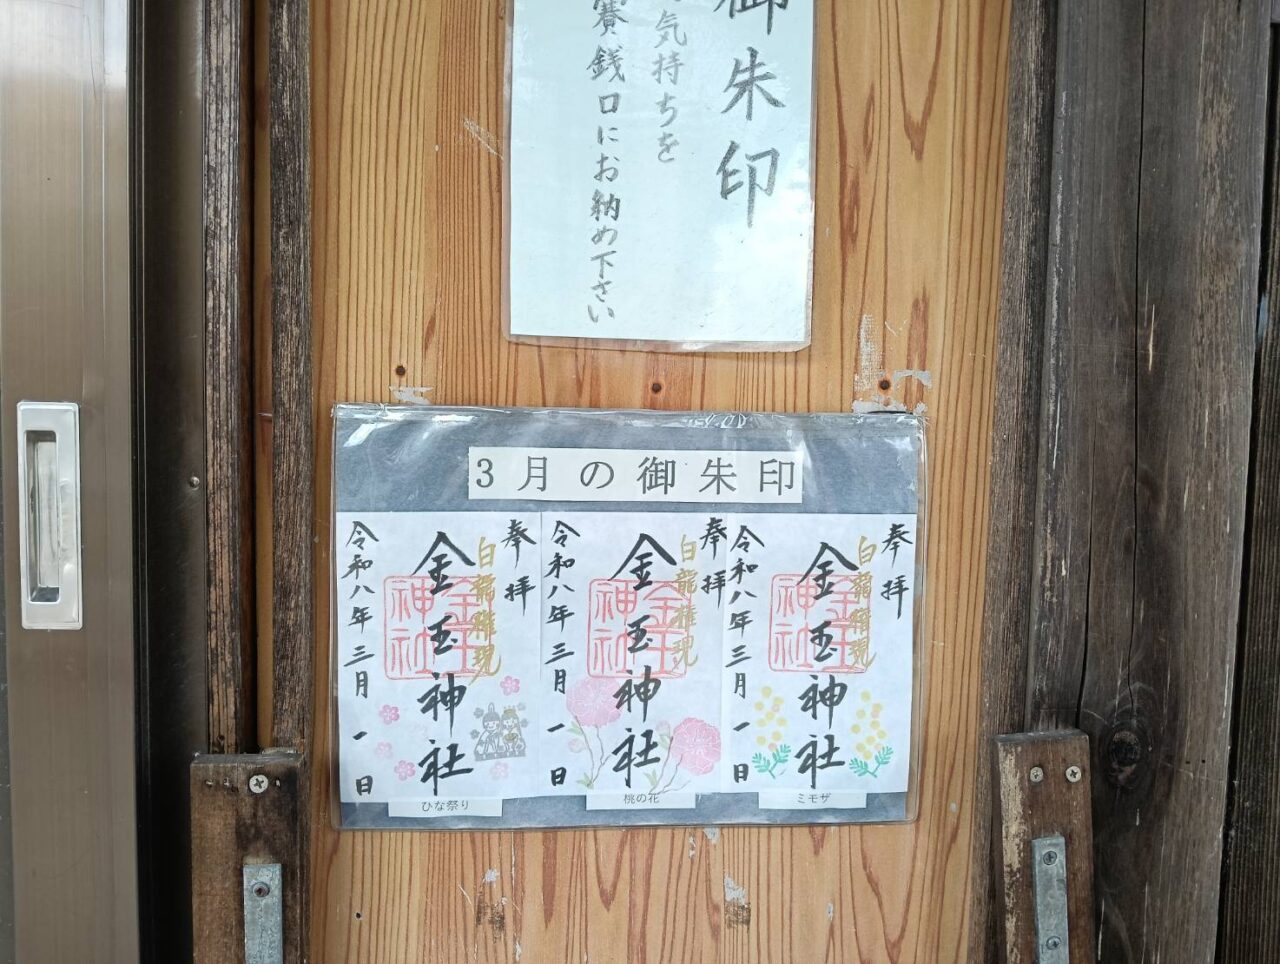 御朱印
気持ちを
賽銭口にお納め下さい
3月の御朱印
奉拝
白龍権現
金玉神社
令和八年三月一日
ミモザ
奉拝
白龍権現
金玉神社
令和八年三月一日
桃の花
奉拝
白龍権現
金玉神社
令和八年三月一日
ひな祭り